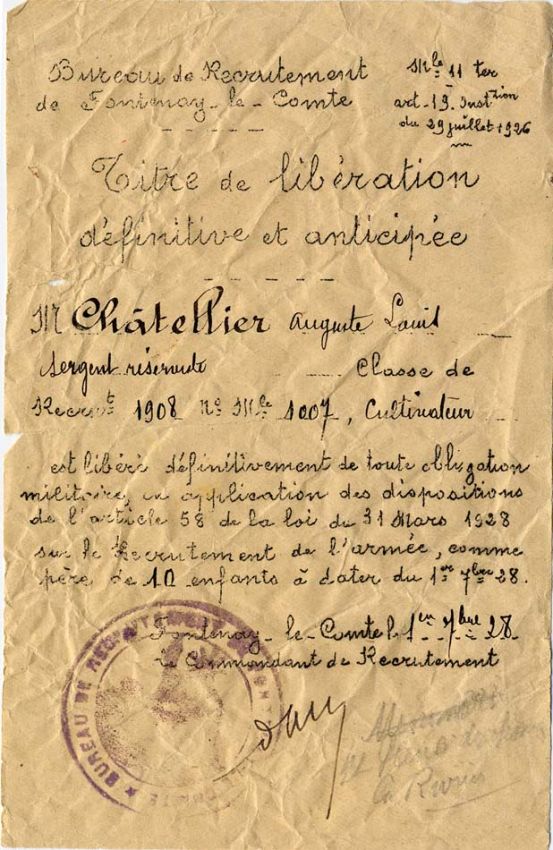 Bureau de Recrutement
de Fontenay-le-Comte
Mle 11 ter
art. 13. Instction
du 29 juillet 1926
Titre de libération
définitive et anticipée
Mr Châtellier Auguste Louis
sergent réserviste Classe de
Recrutt 1908 No Mle 1007, Cultivateur
est libéré définitivement de toute obligation
militaire, en application des dispositions
de l'article 58 de la loi du 31 Mars 1928
sur le Recrutement de l'armée, comme
père de 10 enfants à dater du 1er 7bre 28.
Fontenay-le-Comte l 1er 7bre 28
le Commandant de Recrutement
BUREAU DE RECRUTEMENT